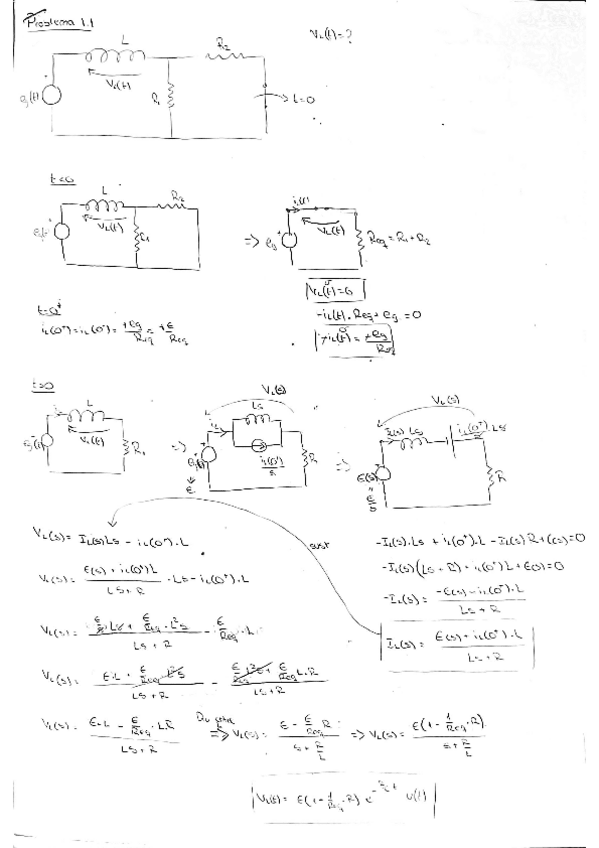 Problema 1.1
V_L(t)=?
L
R_2
V_L(t)
e_g(t)
R_1
t=0
t<0
L
R_2
V_L(t)
R_1
=>
i_L(t)
V_L(t)
e_g
Req = R_1 + R_2
V_L(t)=0
-i_L(t). Req + e_g = 0
t=0^+
i_L(0^-)=i_L(0^+)= +e_g/Req = +E/Req
t>0
L
V_L(t)
R_1
=>
V_L(s)
Ls
R
=>
V_L(s)
I_L(s) Ls
i_L(0^+).L
E(s)
R
V_L(s)= I_L(s)Ls - i_L(0^+).L
sust
-I_L(s).Ls + i_L(0^+).L - I_L(s)R + E(s)=0
-I_L(s)(Ls + R) + i_L(0^+)L + E(s)=0
V_L(s)= (E(s) + i_L(0^+)L)/(Ls + R) . Ls - i_L(0^+).L
-I_L(s)= (-E(s) - i_L(0^+).L)/(Ls + R)
I_L(s)= (E(s) + i_L(0^+).L)/(Ls + R)
V_L(s)= (E/s Ls + E/Req . L²s)/(Ls + R) - E/Req . L
V_L(s)= (E.L + E/Req . L²s)/(Ls + R) - (E/Req L²s + E/Req L.R)/(Ls + R)
V_L(s)= (E.L - E/Req . LR)/(Ls + R) => V_L(s)= (E - E/Req R)/(s + R/L) => V_L(s)= E(1 - 1/Req . R)/(s + R/L)
V_L(t)= E(1 - 1/Req . R) e^(-R/L t) u(t)